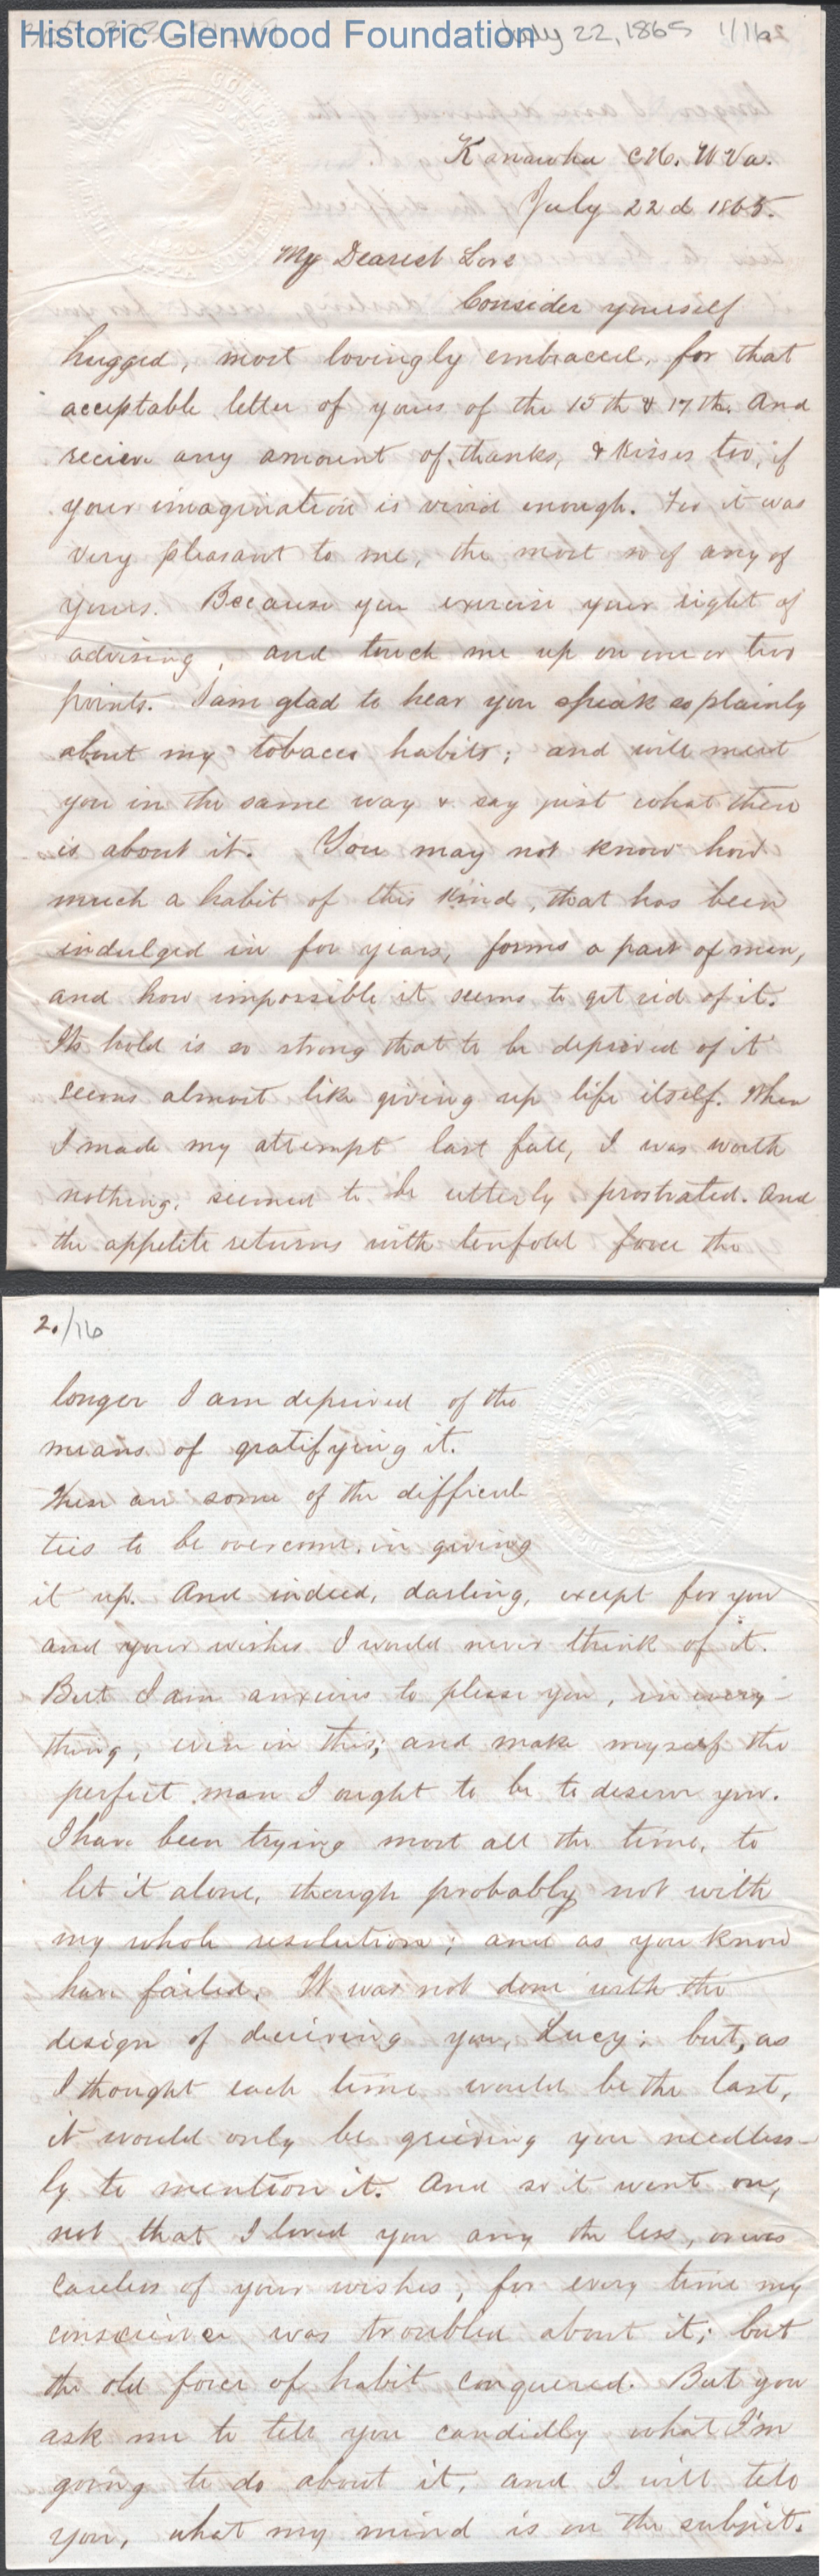 Historic Glenwood Foundation
July 22, 1865 1/16
Kanawha C.H. W Va.
July 22d 1865.
My Dearest Love
Consider yourself
hugged, most lovingly embraced, for that
acceptable letter of yours of the 15th & 17th. And
recieve any amount of thanks, & kisses too, if
your imagination is vivid enough. For it was
very pleasant to me, the most so of any of
yours. Because you exercise your right of
advising, and touch me up on one or two
points. I am glad to hear you speak so plainly
about my tobacco habits; and will meet
you in the same way & say just what there
is about it. You may not know how
much a habit of this kind, that has been
indulged in for years, forms a part of men,
and how impossible it seems to get rid of it.
Its hold is so strong that to be deprived of it
seems almost like giving up life itself. When
I made my attempt last fall, I was worth
nothing, seemed to be utterly prostrated. And
the appetite returns with tenfold force the
2./16
longer I am deprived of the
means of gratifying it.
These are some of the difficul
ties to be overcome, in giving
it up. And indeed, darling, except for you
and your wishes I would never think of it.
But I am anxious to please you, in every-
thing, even in this; and make myself the
perfect man I ought to be to deserve you.
I have been trying most all the time, to
let it alone, though probably not with
my whole resolution; and as you know
have failed. It was not done with the
design of deceiving you, Lucy; but, as
I thought each time would be the last,
it would only be grieving you needless-
ly to mention it. And so it went on,
not that I loved you any the less, or was
careless of your wishes, for every time my
conscience was troubled about it; but
the old force of habit conquered. But you
ask me to tell you candidly what I'm
going to do about it, and I will tell
you, what my mind is on the subject.